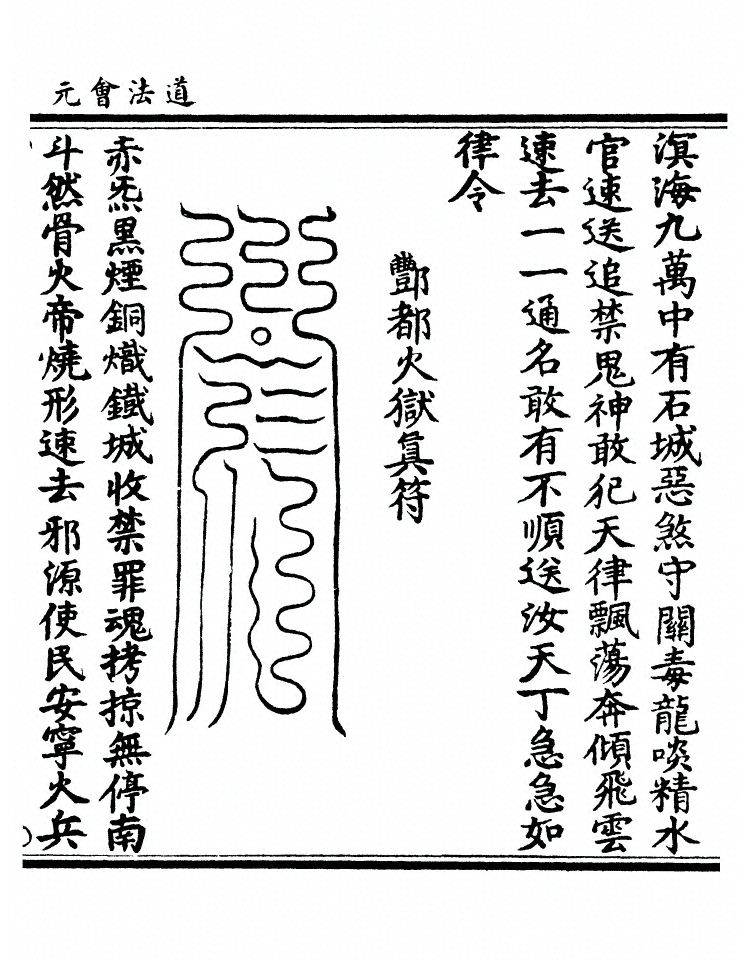 道法會元
溟海九萬中有石城惡煞守關毒龍啖精水
官速送追禁鬼神敢犯天律飄蕩奔傾飛雲
速去一一通名敢有不順送汝天丁急急如
律令
酆都火獄真符
赤炁黑煙銅熾鐵城收禁罪魂拷掠無停南
斗然骨火帝燒形速去邪源使民安寧火兵